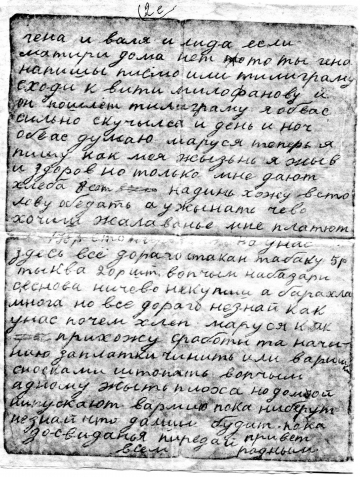 гена и валя и лида если
матири дома нет тото ты гена
напишы писмо или тилиграму
сходи к вити милофанову и
он пошлёт тилиграму я обвас
сильно скучился и день и ноч
обвас думаю маруся теперь я
пишу как моя жызьнь я жыв
и здоров но только мне дают
хлеба надинь хожу всто
лову обедать а ужынать чево
хочиш жалаванье мне платют
но унас
здесь всё дорого стакан табаку 5р
тыква вопчым набазари
ничево некупиш а барахла
многа но всё дорого незнай как
унас почем хлеп маруся как
прихожу сработы та начи-
нию заплатки чинить или
носками штопять вопчым
адному жыть плоха но домой
нипускают вармию пока ниберут
незнай что дальшы будит пока
досвиданья пиредай привет
всем родным